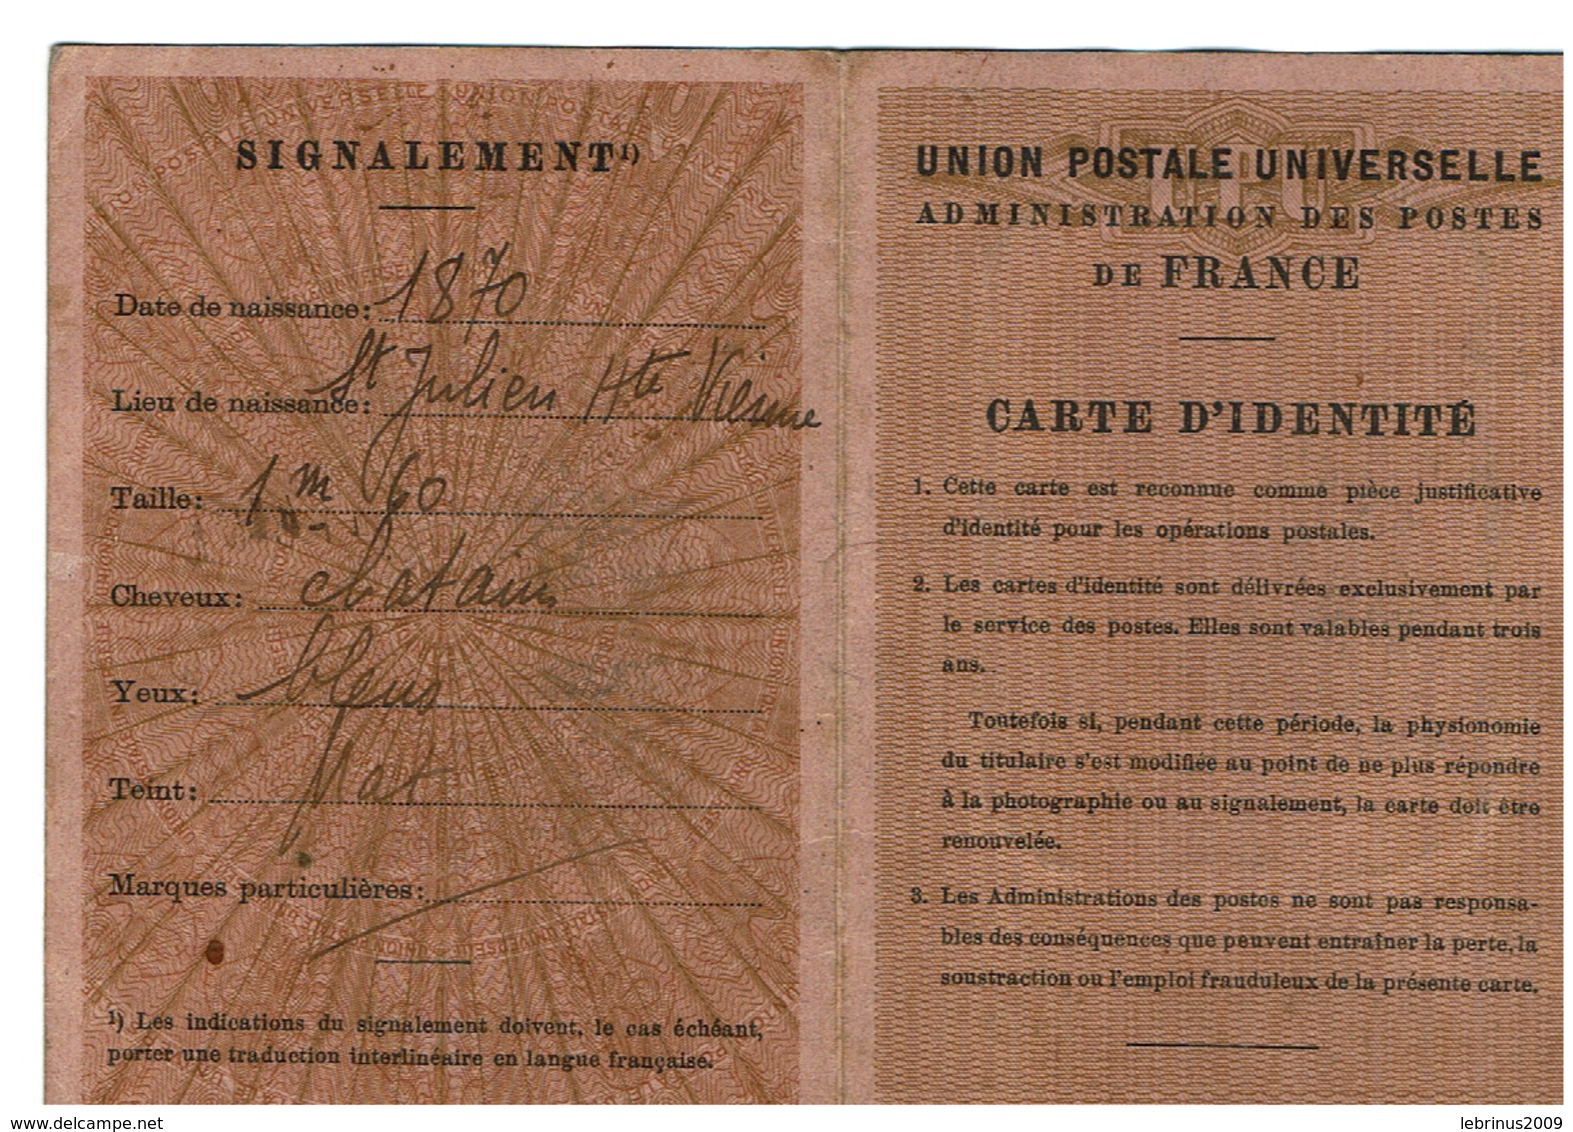 SIGNALEMENT 1)
Date de naissance: 1870
Lieu de naissance: St Julien Hte Vienne
Taille: 1 m 60
Cheveux: chatains
Yeux: bleus
Teint: Mat
Marques particulières:
1) Les indications du signalement doivent, le cas échéant,
porter une traduction interlinéaire en langue française.
UNION POSTALE UNIVERSELLE
ADMINISTRATION DES POSTES
DE FRANCE
CARTE D'IDENTITÉ
1. Cette carte est reconnue comme pièce justificative
d'identité pour les opérations postales.
2. Les cartes d'identité sont délivrées exclusivement par
le service des postes. Elles sont valables pendant trois
ans.
Toutefois si, pendant cette période, la physionomie
du titulaire s'est modifiée au point de ne plus répondre
à la photographie ou au signalement, la carte doit être
renouvelée.
3. Les Administrations des postes ne sont pas responsa-
bles des conséquences que peuvent entraîner la perte, la
soustraction ou l'emploi frauduleux de la présente carte.
www.delcampe.net
lebrinus2009